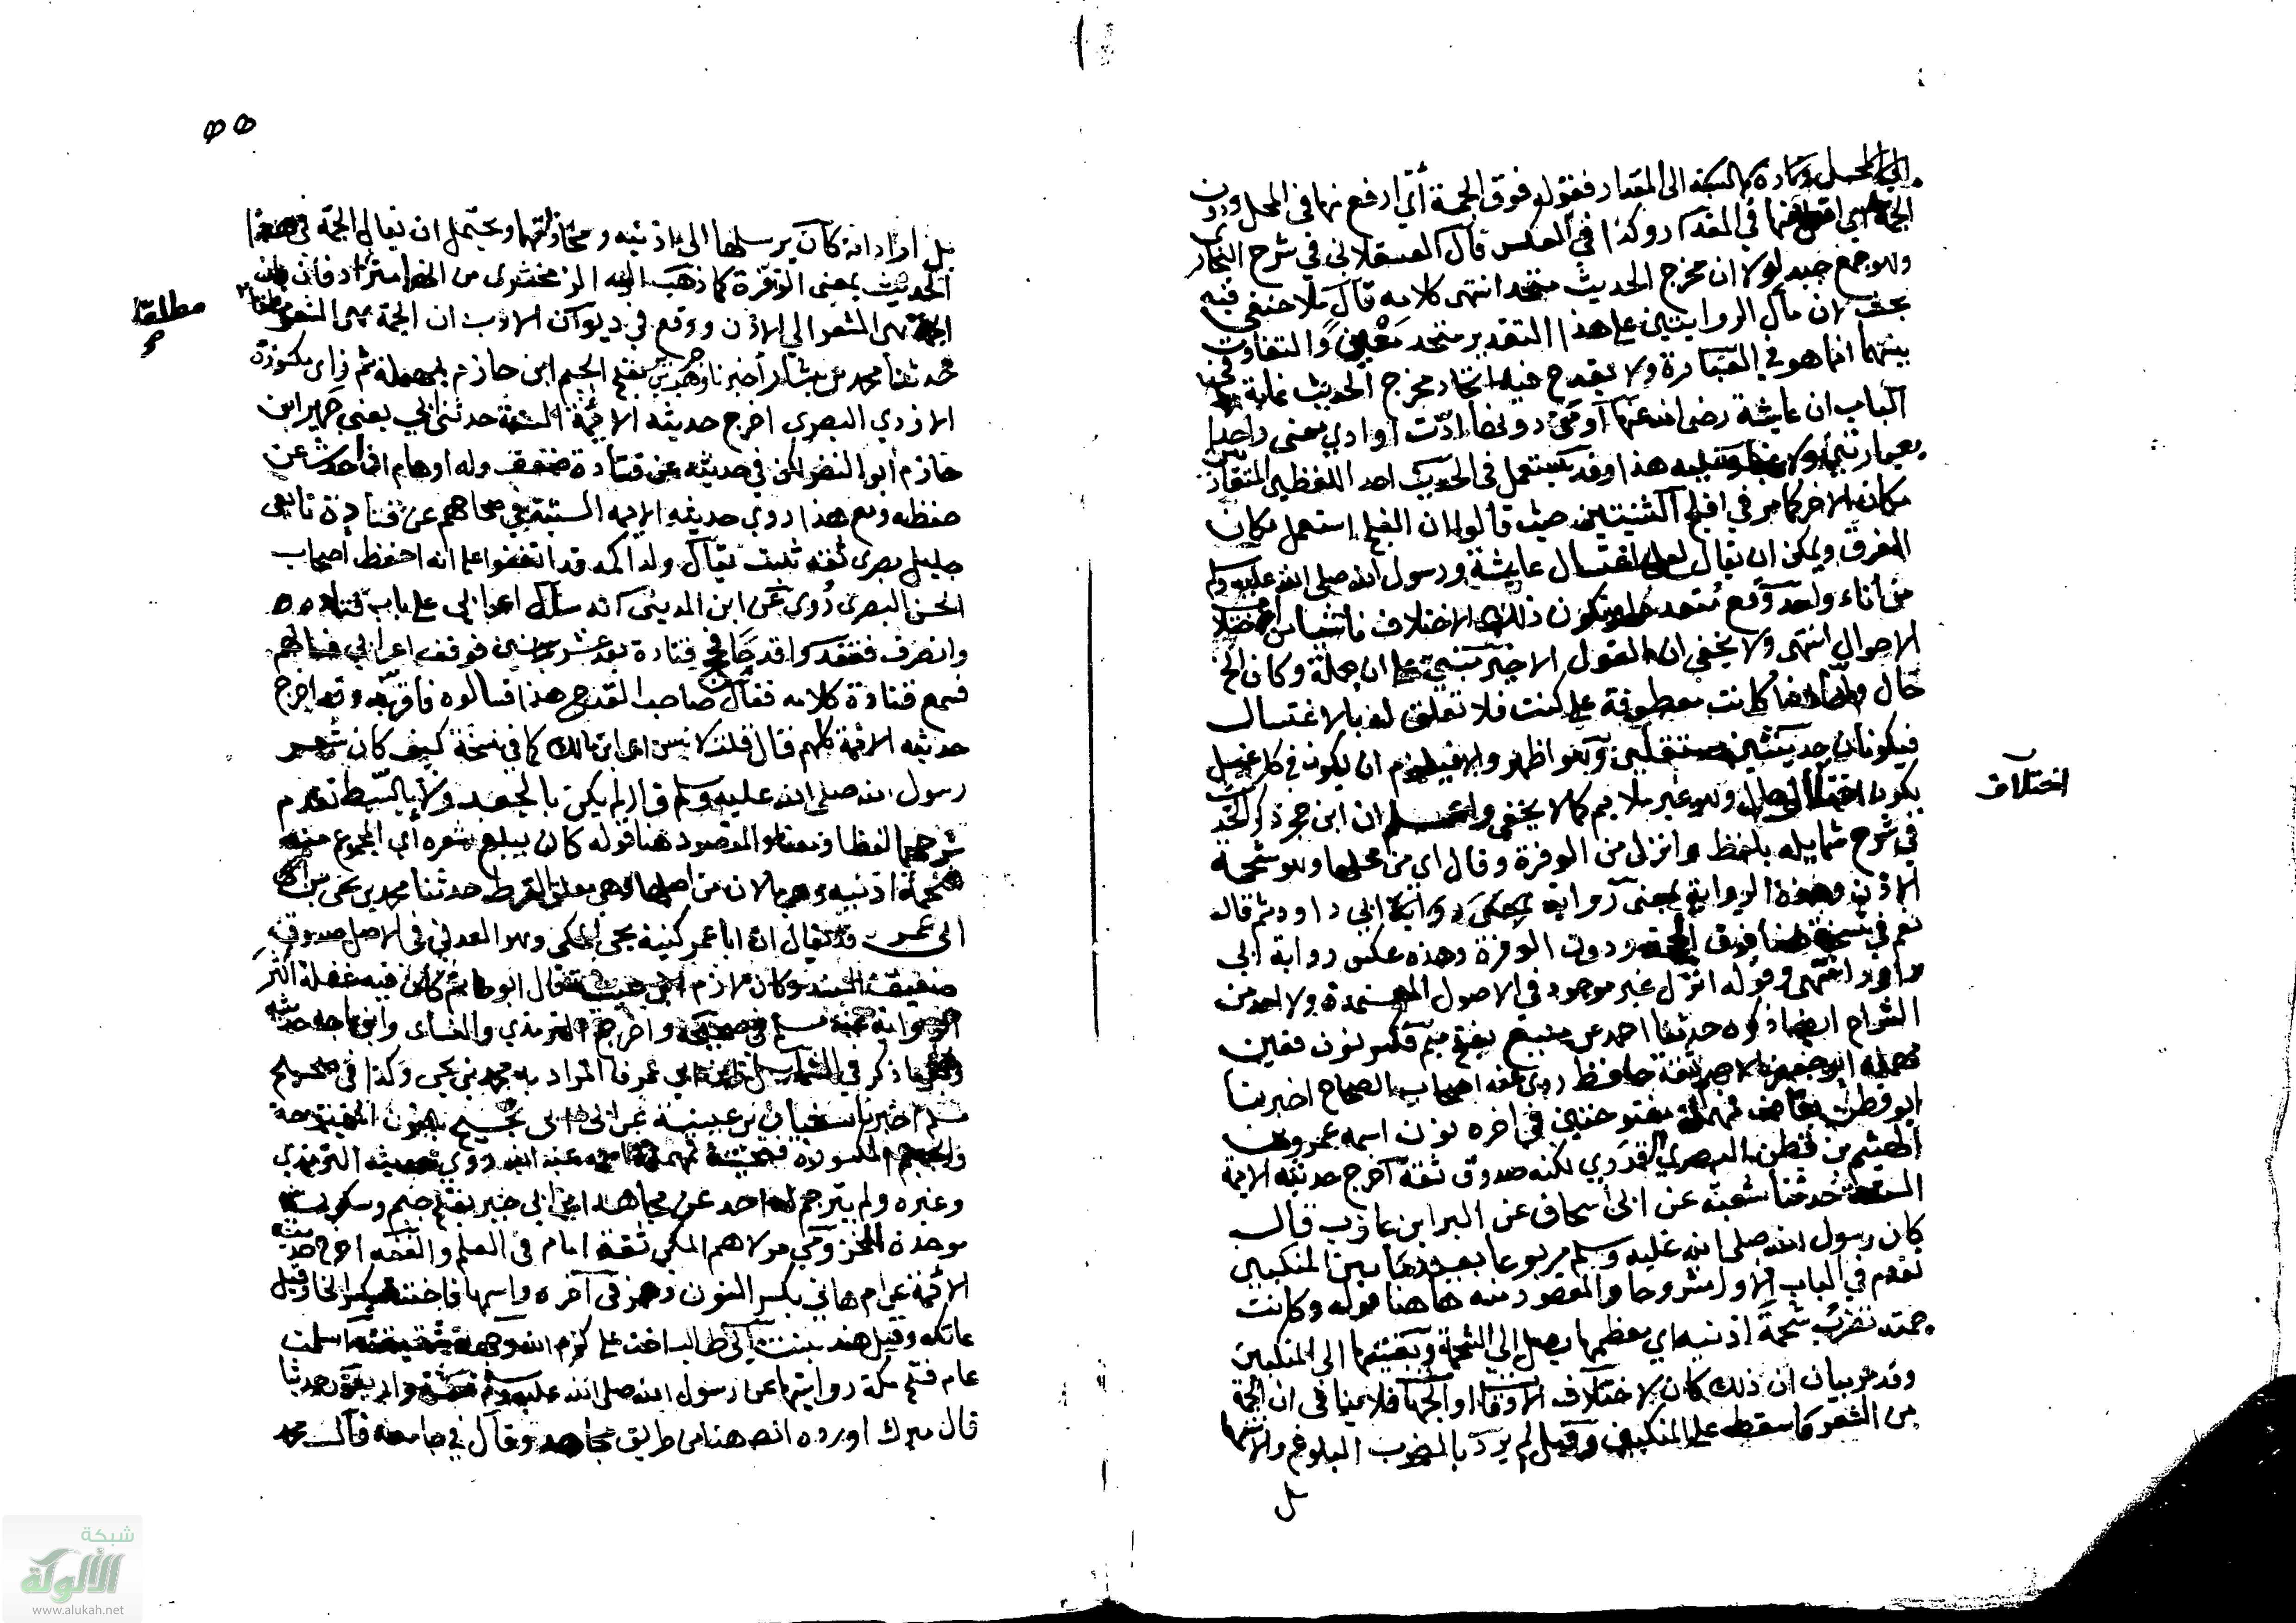 الى المحل وتارة بالنسبة الى المقدار فقوله فوق الجمة أي ارفع منها في المحل ودون
الجمة اي اقل منها في المقدار وكذا في العكس قال العسقلاني في شرح البخاري
وهو جمع جيد لولا ان مخرج الحديث متحد انتهى كلامه قال ملا حنفي فيه
بحث لان مآل الروايتين على هذا التقدير متحد معنى والتفاوت
بينهما انما هو في العبارة ولا يقدح فيه اتحاد مخرج الحديث غاية
الباب ان عايشة رضي الله عنها او من دونها ادت او ادي معنى واحدا
بعبارتين ولا عليه هذا وقد يستعمل في الحديث احد اللفظين المتقاربين
مكان الاخر كما مر في افلج الثنيتين حيث قالوا ان الفلج استعمل مكان
الفرق ويمكن ان يقال لعل اغتسال عايشة ورسول الله صلى الله عليه وسلم
من اناء واحد وقع متعددا ويكون ذلك الاختلاف ناشيا من اختلاف
الاحوال انتهى ولا يخفى ان القول الاخير مبني على ان جملة وكان الخ
حال واما اذا كانت معطوفة على كنت فلا تعلق لها بالاغتسال
فيكونان حديثين مستقلين وهو اظهر والا فيلزم ان يكون في كل غسل
يكون اختلاف حال وهو غير ملايم كما لا يخفى واعلم ان ابن حجر ذكر الحديث
اختلاف
في شرح شمايله بلفظ وانزل من الوفرة وقال اي من محلها وهو شحمة
الاذن وهذه الرواية بمعنى رواية ابي داود ثم قال
نعم في نسخة هنا فوق الجمة ودون الوفرة وهذه عكس رواية ابي
داود انتهى وقوله انزل غير موجود في الاصول المعتمدة ولا احد من
الشراح ايضا ذكره حدثنا احمد بن منيع بفتح ميم فكسر نون فعين
مهملة ابو جعفر الاصم ثقة حافظ روى عنه اصحاب الصحاح اخبرنا
ابو قطن بقاف فمهملة مفتوحتين في اخره نون اسمه عمرو بن
الهيثم بن قطن البصري القدري لكنه صدوق ثقة اخرج حديثه الايمة
الستة حدثنا شعبة عن ابي اسحاق عن البرا ابن عازب قال
كان رسول الله صلى الله عليه وسلم مربوعا بعيد ما بين المنكبين
تقدم في الباب الاول مشروحا والمقصود منه هاهنا قوله وكانت
جمته تضرب شحمة اذنيه اي معظمها يصل الى الشحمة وبقيتها الى المنكبين
وقد مر بيان ان ذلك كان لاختلاف الاوقات او الجهات فلا ينافي ان الجمة
من الشعر ما سقط على المنكبين وقيل لم يرد بالضرب البلوغ والانتهاء
بل
٥٥
بل اراد انه كان يرسلها الى اذنيه ومحاذاتها ويحتمل ان يقال الجمة في هذا
الحديث بمعنى الوفرة كما ذهب اليه الزمخشري من انها مترادفان بان
الجمة هي الشعر الى الاذن ووقع في ديوان الادب ان الجمة هي الشعر مطلقا
مطلقا
حدثنا محمد بن بشار أخبرنا وهب بن جرير بفتح الجيم ابن حازم بمهملة ثم زاي مكسورة
الازدي البصري اخرج حديثه الائمة الستة حدثني ابي يعني جرير ابن
حازم أبو النضر لكن في حديثه عن قتادة ضعف وله اوهام اذا حدث عن
حفظه ومع هذا روى حديثه الايمة الستة في صحاحهم عن قتادة تابعي
جليل بصري ثقة ثبت يقال ولد اكمه قد اتفقوا على انه احفظ اصحاب
الحسن البصري روى عن ابن المديني انه سأل اعرابي على باب قتادة
وانصرف ففقدوا قدحا فحج قتادة بعد عشر سنين فوقف اعرابي فسالهم
فسمع قتادة كلامه فقال صاحب القدح هذا فسالوه فأقر به وقد اخرج
حديثه الائمة كلهم قال قلت لانس اي ابن مالك كما في نسخة كيف كان شعر
رسول الله صلى الله عليه وسلم قال لم يكن بالجعد ولا بالسبط تقدم
شرحهما لفظا ومعنا والمقصود هنا قوله كان يبلغ شعره أي المجموع منه
شحمة اذنيه وهي ما لان من اصلها وهي معلق القرط حدثنا محمد بن يحيى بن
ابي عمر وقد يقال ان ابا عمر كنية يحيى المكي وهو العدني في الاصل صدوق
صنف المسند وكان لازم ابن عيينة قال ابو حاتم كان فيه غفلة اكثر
الرواية عنه مسلم في صحيحه واخرج الترمذي والنسائي وابن ماجه حديثه
وكلما ذكر في الشمايل ابن ابي عمر فالمراد به محمد بن يحيى وكذا في صحيح
مسلم اخبرنا سفيان بن عيينة عن ابن ابي نجيح بنون المفتوحة
والجيم المكسورة فتحتية فمهملة روى حديثه الترمذي
وغيره ولم يترجم له احد عن مجاهد اي ابن جبر بفتح جيم وسكون
موحدة المخزومي مولاهم المكي ثقة امام في العلم والفقه اخرج حديثه
الائمة عن ام هاني بكسر النون وهمز في آخره واسمها فاختة بكسر الخا وقيل
عاتكة وقيل هند بنت أبي طالب اخت علي كرم الله وجهه شقيقته اسلمت
عام فتح مكة روايتها عن رسول الله صلى الله عليه وسلم ستة واربعون حديثا
قال ميرك اورده المص هنا من طريق مجاهد وقال في جامعه قال محمد
شبكة
الألوكة
www.alukah.net